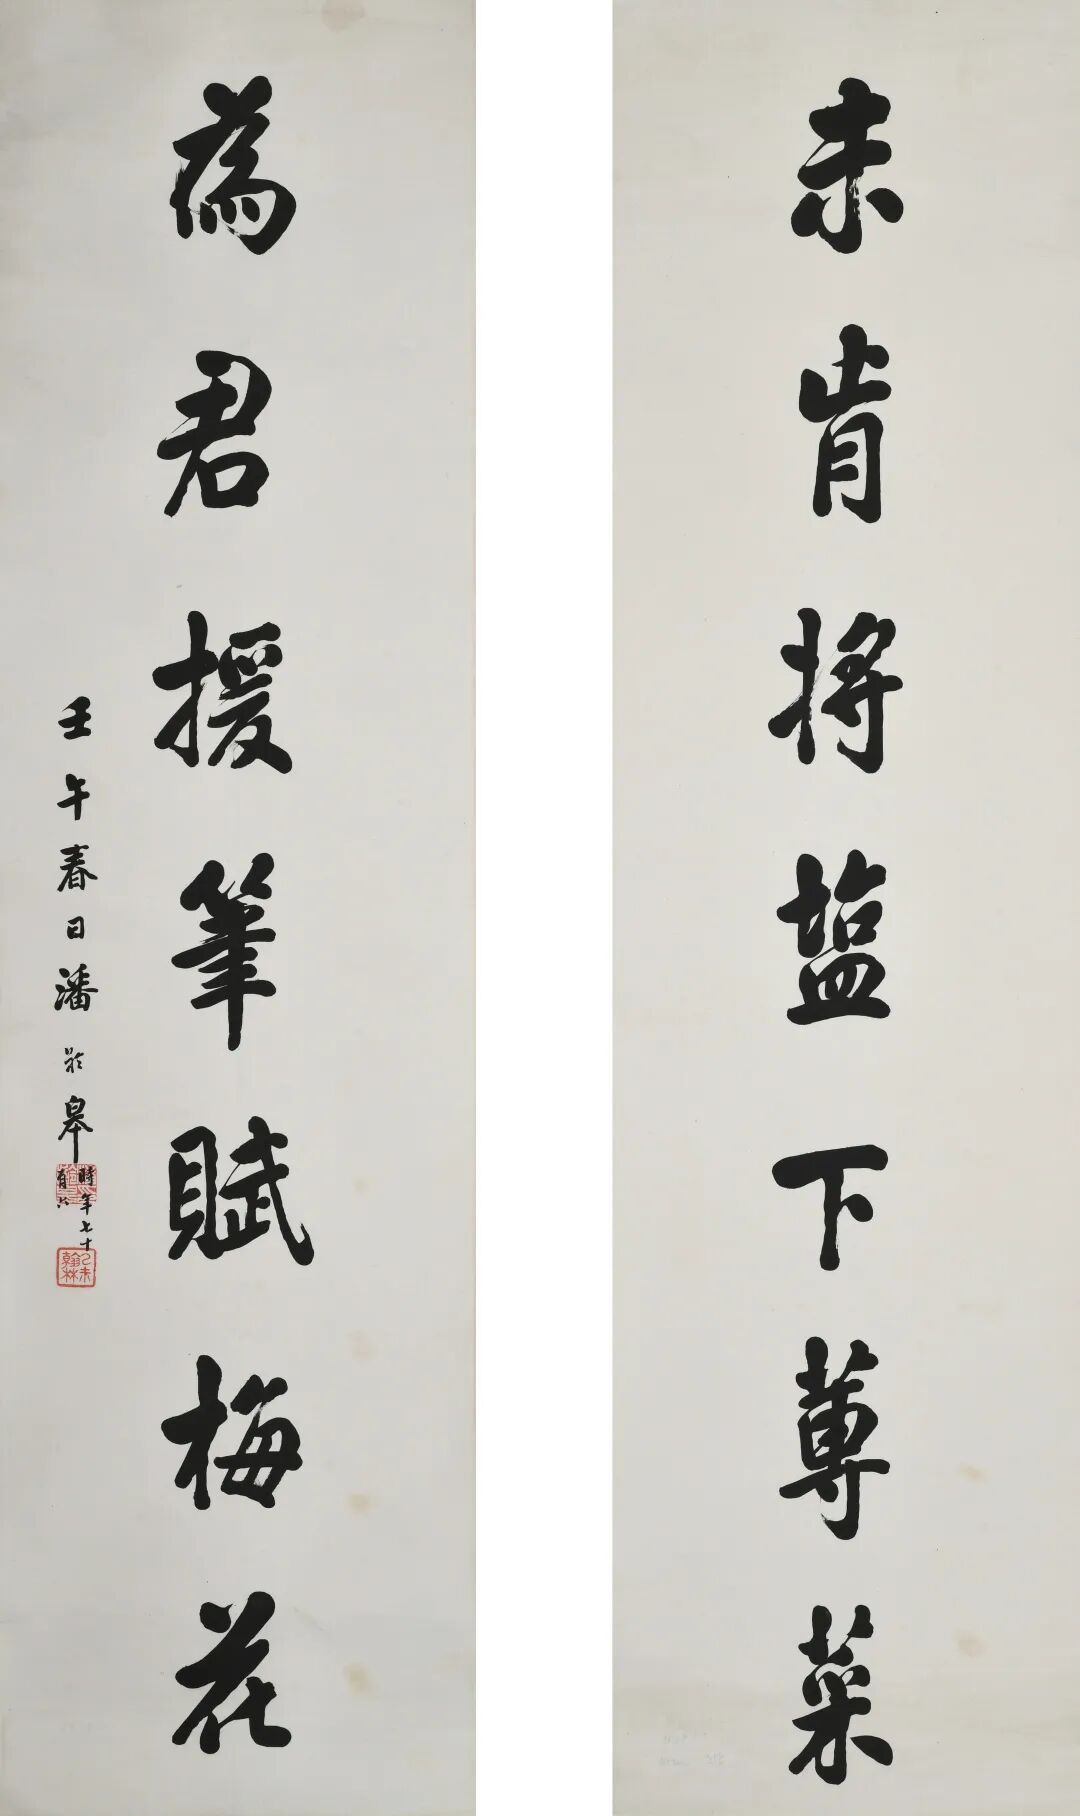 未肯將塩下蓴菜
為君援筆賦梅花
壬午春日潘齡皋
時年七十有六
乙未翰林